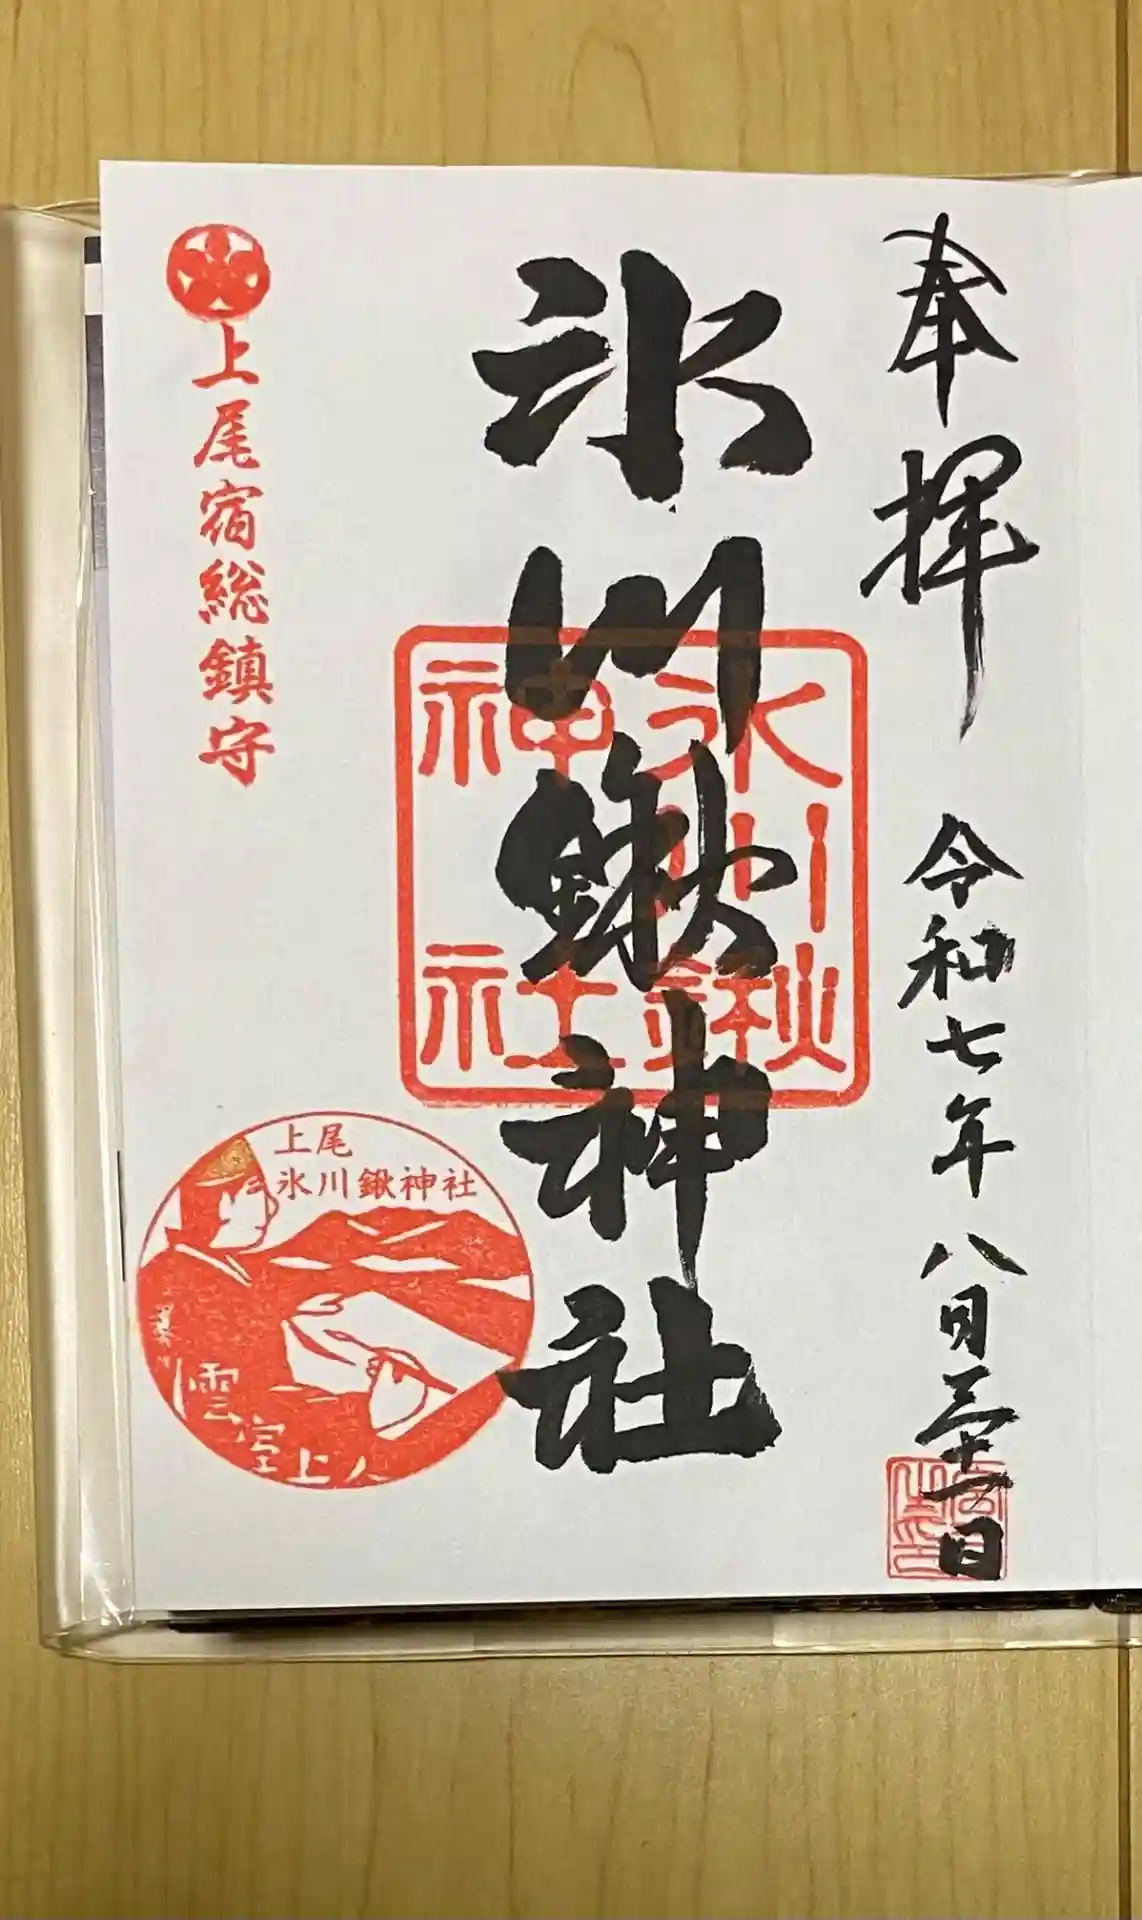 奉拝
令和七年八月三十一日
氷川鍬神社
氷川鍬神社
上尾宿総鎮守
上尾
氷川鍬神社
雲室上人